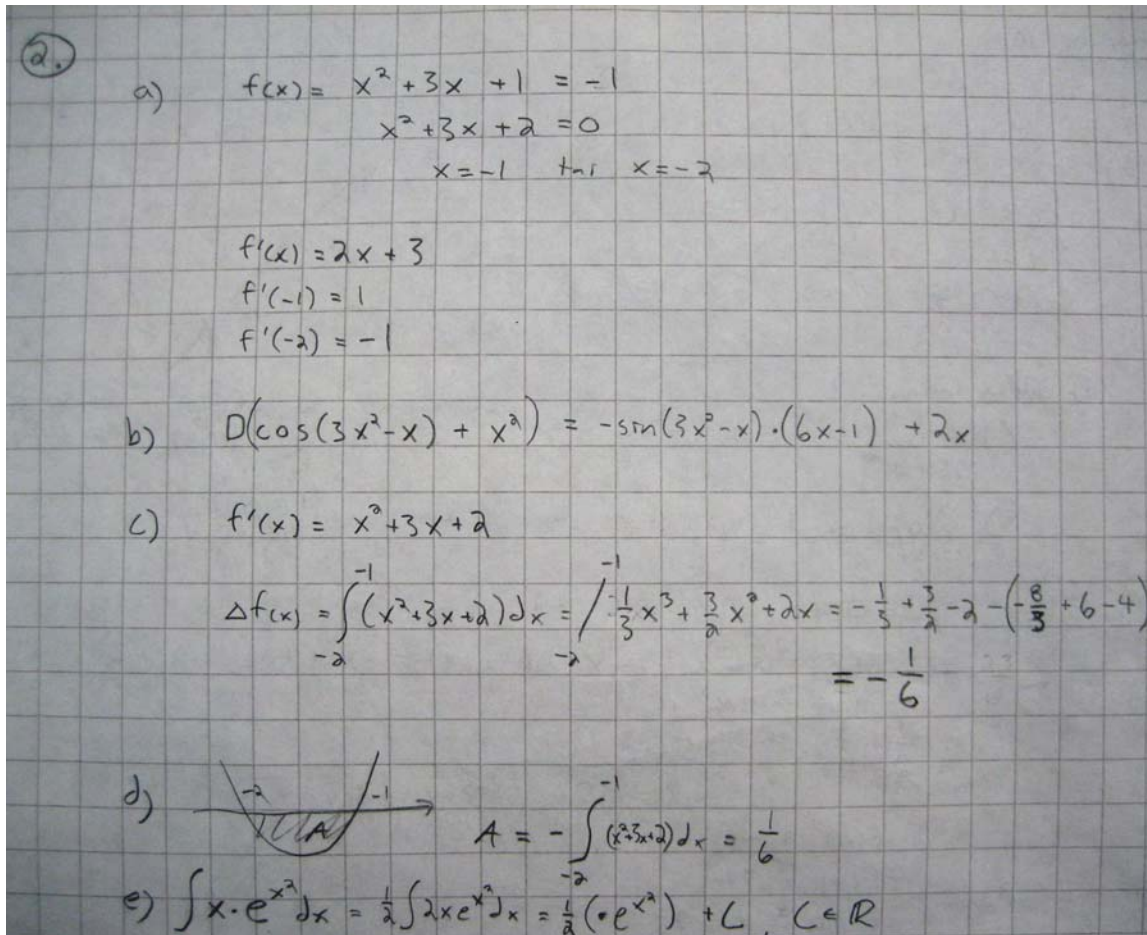 2.
a) f(x) = x² + 3x + 1 = -1
x² + 3x + 2 = 0
x = -1 tai x = -2
f'(x) = 2x + 3
f'(-1) = 1
f'(-2) = -1
b) D(cos(3x²-x) + x²) = -sin(3x²-x)·(6x-1) + 2x
c) f'(x) = x²+3x+2
Δf(x) = ∫₋₂⁻¹ (x²+3x+2)dx = /₋₂⁻¹ 1/3 x³ + 3/2 x² + 2x = -1/3 + 3/2 - 2 - (-8/3 + 6 - 4)
= - 1/6
d) -2 -1 A A = - ∫₋₂⁻¹ (x²+3x+2)dx = 1/6
e) ∫x·e^(x²)dx = 1/2 ∫2xe^(x²)dx = 1/2 (·e^(x²)) + C, C ∈ ℝ